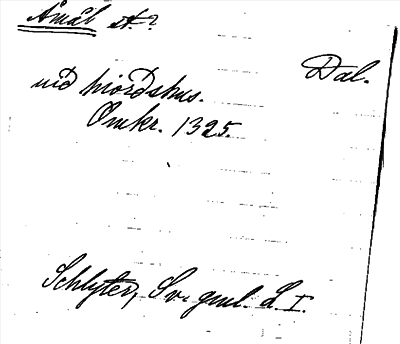 Åmål st.?
Dal.
uið morðshus.
Omkr. 1325.
Schlyter, Sv. gml. L. I.